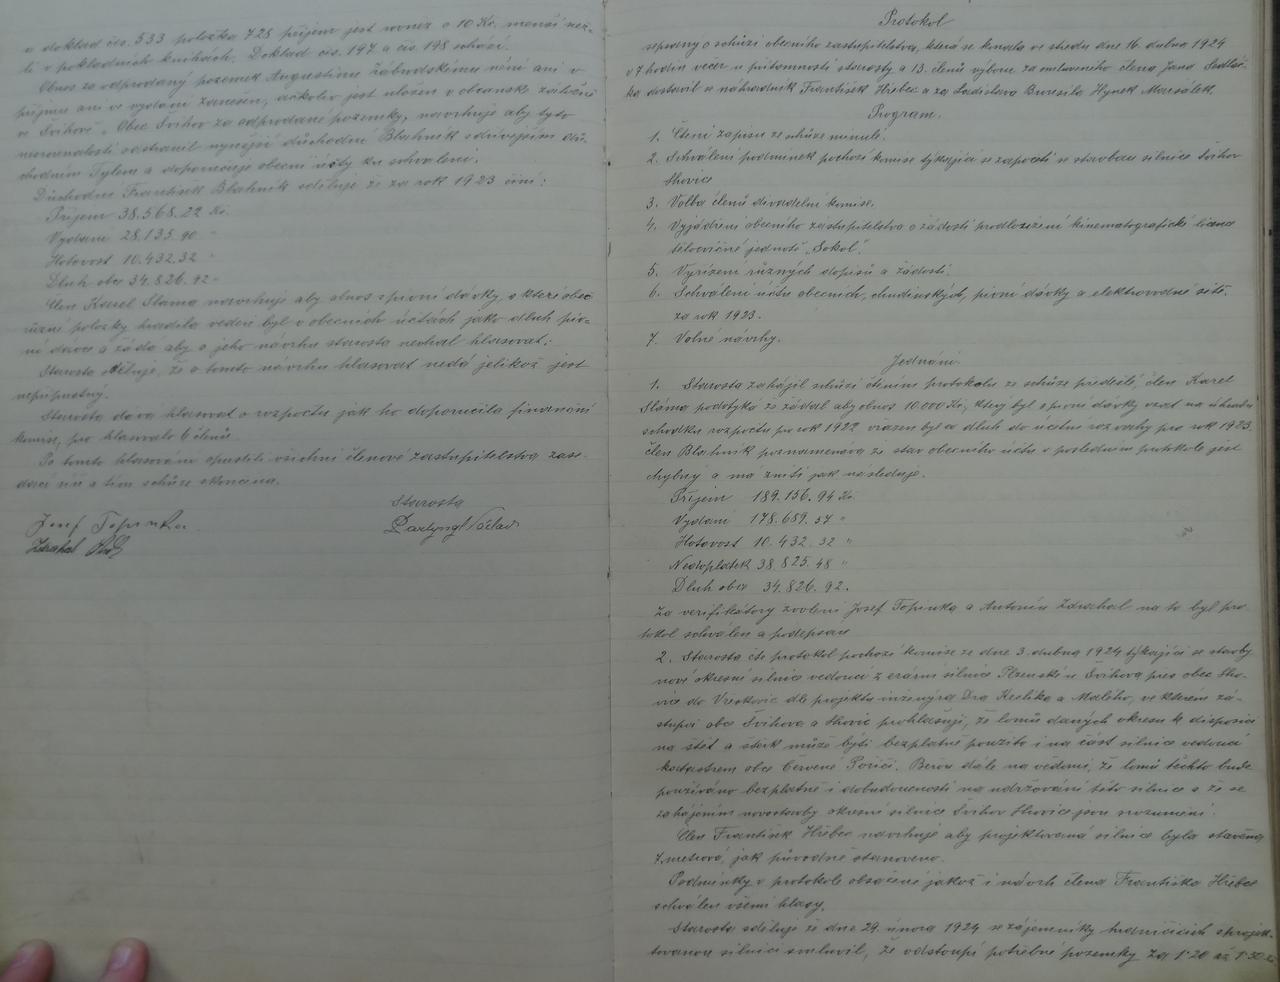 a doklad čís. 533 položka 728 příjem jest rovněz o 10 Kč. menší než-
li v pokladních knihách. Doklad čís. 197 a čís 198 schází.
Obnos za odprodaný pozemek Augustinu Zábrodskému není ani v
příjmu ani ve vydání zanesen, ačkoliv jest uložen v občanské záložně
ve Švihově „Obec Švihov za odprodané pozemky, navrhuje aby tyto
nesrovnalosti odstranil nynější důchodní Blahník s dřívějším dů-
chodním Tylem a doporučuje obecní účty ku schválení.
Důchodní František Blahník sděluje že za rok 1923 činí:
Příjem 38.568.22 Kč.
Vydání 28.135.90 "
Hotovost 10.432.32 "
Dluh obce 34.826.92 "
Člen Karel Sláma navrhuje aby obnos z pivní dávky, z které obec
různé položky hradila veden byl v obecních účtách jako dluh piv-
ní dávce a žádá aby o jeho návrhu starosta nechal hlasovat.
Starosta sděluje, že o tomto návrhu hlasovat nedá jelikož jest
nepřípustný.
Starosta dává hlasovat o rozpočtu jak ho doporučila finanční
komise, pro hlasovalo 6 členů.
Po tomto hlasování opustili všichni členové zastupitelstva zase-
dací síň a tím schůze skončena.
Starosta
Josef Topinka
Zdrahal
Protokol
sepsaný o schůzi obecního zastupitelstva, která se konala ve středu dne 16. dubna 1924
v 7 hodin večer u přítomnosti starosty a 13. členů výboru za omluveného člena Jana Sedláč-
ka dostavil se náhradník František Hřebec a za Ladislava Hynek Maršálek.
Program.
1. Čtení zápisu ze schůze minulé.
2. Schválení podmínek pochozí komise týkající se započetí se stavbou silnice Švihov
Lhovice
3. Volba členů divadelní komise.
4. Vyjádření obecního zastupitelstva o žádosti prodloužení kinematografické licence
tělocvičné jednotě „Sokol".
5. Vyřízení různých dopisů a žádostí.
6. Schválení účtů obecních, chudinských, pivní dávky a elektrovodné sítě.
za rok 1923.
7. Volné návrhy.
Jednání.
1. Starosta zahájil schůzi čtením protokolu ze schůze předešlé, člen Karel
Sláma podotýká že žádal aby obnos 10.000 Kč, který byl z pivní dávky vzat na úhradu
schodku rozpočtu pro rok 1922 vřazen byl co dluh do účetní rozvahy pro rok 1923.
člen Blahník poznamenává že stav obecního účtu v posledním protokole jest
chybný a má zníti jak následuje.
Příjem 189.156.94 Kč
Vydání 178.689.57 "
Hotovost 10.432.32 "
Nedoplatek 38.825.48 "
Dluh obce 34.826.92.
Za verifikátory zvoleni Josef Topinka a Antonín Zdrahal na to byl pro-
tokol schválen a podepsán
2. Starosta čte protokol pochozí komise ze dne 3. dubna 1924 týkající se stavby
nové okresní silnice vedoucí z erární silnice Plzeňské u Švihova přes obec Lho-
vice do dle projektu inženýra Dra a Malého, ve kterém zá-
stupci obce Švihova a Lhovic prohlašují, že lomů daných okresu k disposici
na štět a štěrk může býti bezplatně použito i na část silnice vedoucí
katastrem obce Červené Poříčí. Berou dále na vědomí, že lomů těchto bude
používáno bezplatně i v budoucnosti na udržování této silnice a že se
zahájením novostavby okresní silnice Švihov Lhovice jsou srozuměni.
Člen František Hřebec navrhuje aby projektovaná silnice byla stavěna
7. metrová, jak původně stanoveno.
Podmínky v protokole obsažené jakož i návrh člena Františka Hřebce
schválen všemi hlasy.
Starosta sděluje že dne 29. února 1924 se zájemníky hraničících s projek-
tovanou silnicí smluvil, že odstoupí potřebné pozemky za 1·20 až 1·50 Kč